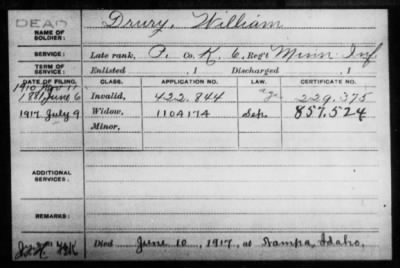 DEAD
NAME OF SOLDIER: Drury, William
SERVICE: Late rank, P. Co. K, 6, Reg't Minn Inf
TERM OF SERVICE: Enlisted , 1 Discharged , 1
DATE OF FILING. CLASS. APPLICATION NO. LAW. CERTIFICATE NO.
1910 Nov 11
1881 June 6 Invalid, 422.844 229.375
1917 July 9 Widow, 1104174 Sep. 857.524
Minor,
ADDITIONAL SERVICES:
REMARKS:
Died June 10, 1917, at Nampa, Idaho.